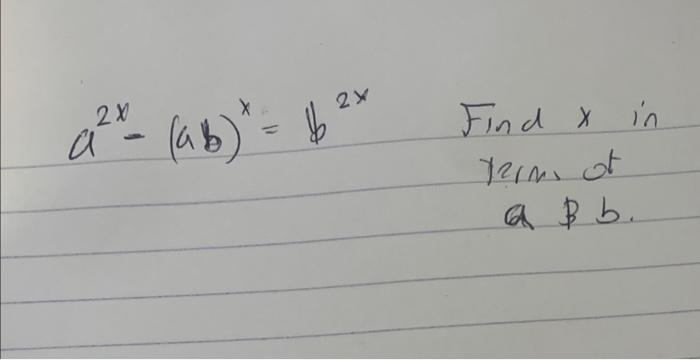 a^{2x} - (ab)^x = b^{2x}
Find x in
terms of
a & b.